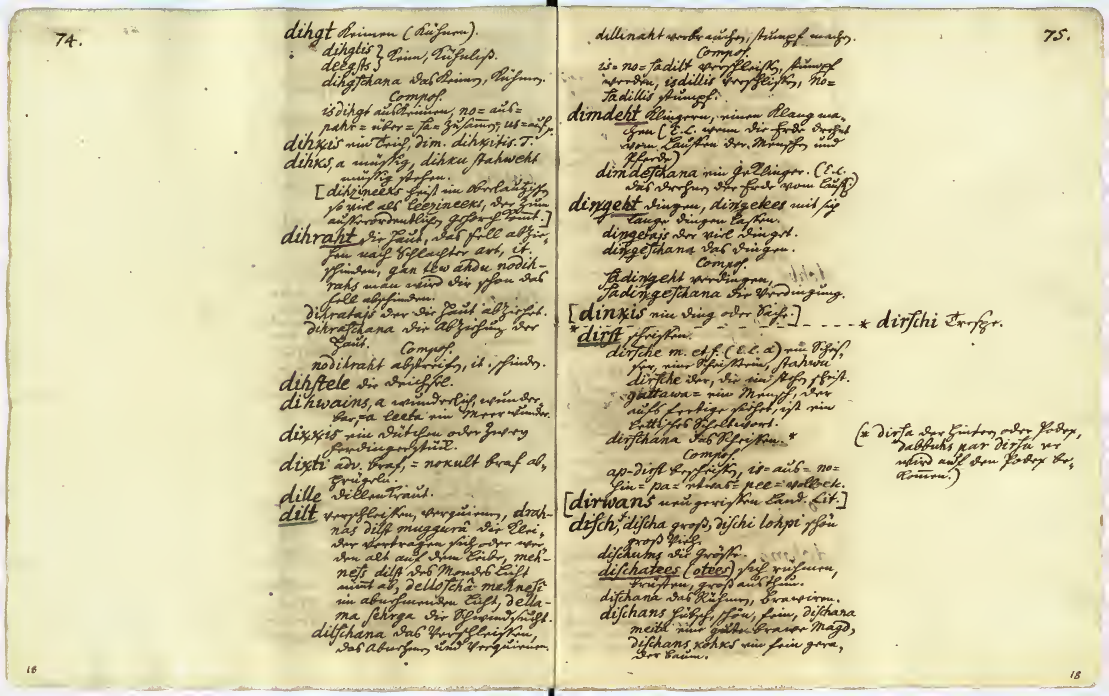 74.
dihgt Keimen (Kühnen).
dihgtis } Keim, Kühnliß.
deegsts }
dihgschana das Keimen, Kühnen.
Compos.
isdihgt auskeimen, no= aus=
pahr= über= sa= zusamm; us= auf.
dihkis ein Teich, dim. dihkitis. T.
dihks, a müssig, dihku stahweht
müssig stehen.
[dihzineeks heist im Oberlautzisch
so viel als leezineeks, der zum
ausserordentlichen gehorch kommt.]
dihraht die Haut, das fell abzie=
hen nach Schlachter art, it.
schinden, gan tew ahdu nodih=
rahs man wird dir schon das
fell abschinden.
dihratajs der die Haut abziehet.
dihraschana die Abziehung der
Haut.
Compos.
nodihraht abstreifen, it. schinden.
dihstele die Deichsel.
dihwains, a wunderlich, wunder=
bar, =a leeta ein Meer wunder.
dixxis ein Dütchen oder Zwey
ferdingerstück.
dixti adv. braf, = nokult braf ab=
prügeln.
dille dillenkraut.
dilt verschleissen, verquienen, drah=
nas dilst muggurâ die Klei=
der vertragen sich oder wer=
den alt auf dem Leibe, meh=
ness dilst des Mondes Licht
nimt ab, delloschâ mehnesî
im abnehmenden Licht, della=
ma sehrga die Schwindsucht.
dilschana das Verschleissen,
das Abnehmen und Verquienen.
18
75.
dillinaht verbrauchen, stumpf machen.
Compos.
is= no= sadilt verschleissen, stumpf
werden, isdillis verschlissen, no=
sadillis stumpf.
dimdeht klingern, einen Klang ma=
chen (E.L. wenn die Erde drehnt
vom Lauffen der Menschen und
Pferde)
dimdeschana ein Geklinger. (E.L.
das drehnen der Erde vom Lauff.)
dingeht dingen, dingetees mit sich
lange dingen lassen.
dingetajs der viel dinget.
dingeschana das dingen.
Compos.
sadingeht verdingen,
sadingeschana die Verdingung.
[dinxis ein ding oder Sache.]
* dirschi Trespe.
*dirst scheissen.
dirsche m. et f. (E.L. a) ein Scheis=
ser, eine Scheisserin, stahwu
dirsche der, die im stehen scheist.
gattawa= ein Mensch, der
aufs fertige siehet, ist ein
lettisches Scheltwort.
dirschana das Scheissen. *
(* dirsa der Hinter oder Podex,
dabbuhs par dirsu er
wird auf den Podex be=
kommen.)
Compos.
ap=dirst bescheissen, is= aus= no=
hin= pa= etwas= pee= volleck.
[dirwans neu gerissen Land. Lit.]
disch, discha groß, dischi lohpi schön
groß Vieh.
dischums die Grösse.
dischatees (otees) sich rühmen,
brüsten, groß austhun.
dischana das Rühmen, Braviren.
dischans hübsch, schön, fein, dischana
meita eine gute brawe Magd,
dischans kohks ein fein gera=
der Baum.
18